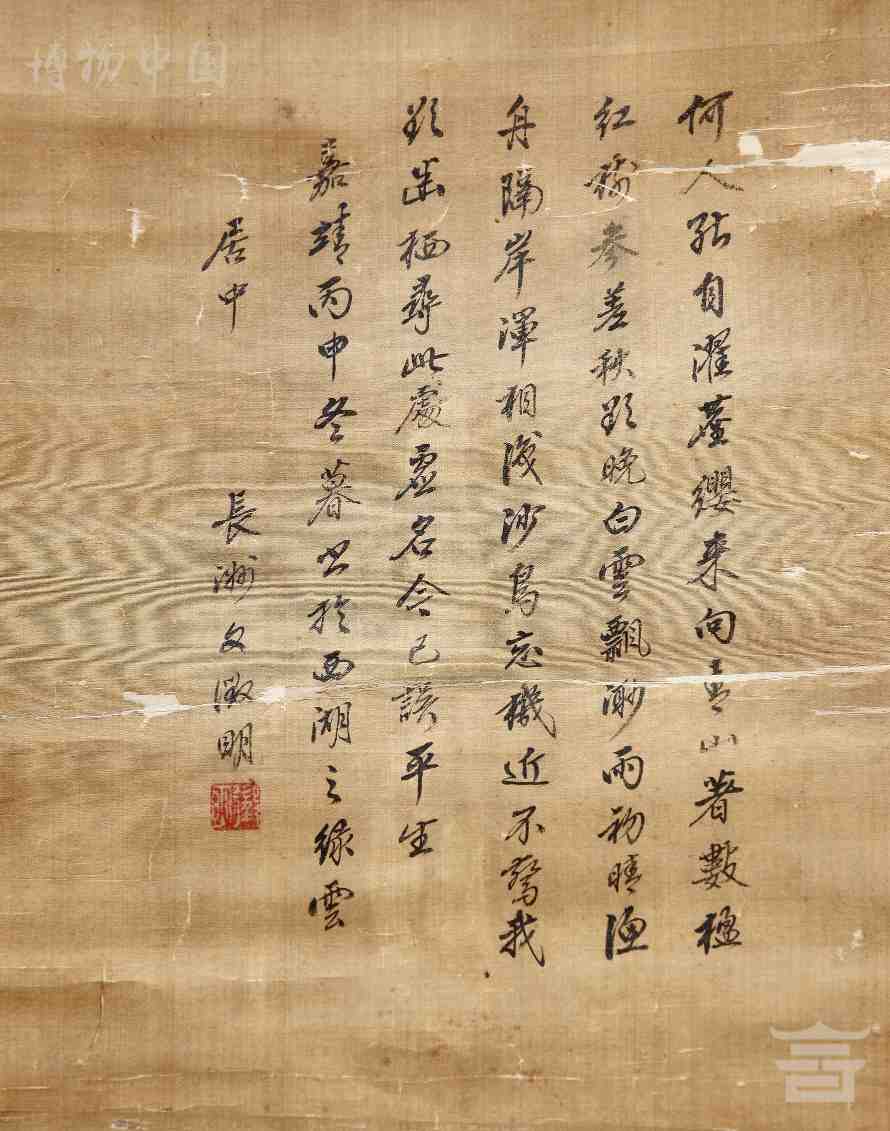 博物中国
何人能自濯塵纓来向青山著數楹
紅樹參差秋欲晚白雲飄渺雨初晴漁
舟隔岸渾相識沙鳥忘機近不驚我
欲幽栖尋此處虛名今已誤平生
嘉靖丙申冬暮書於西湖之綠雲
居中 長洲文徵明